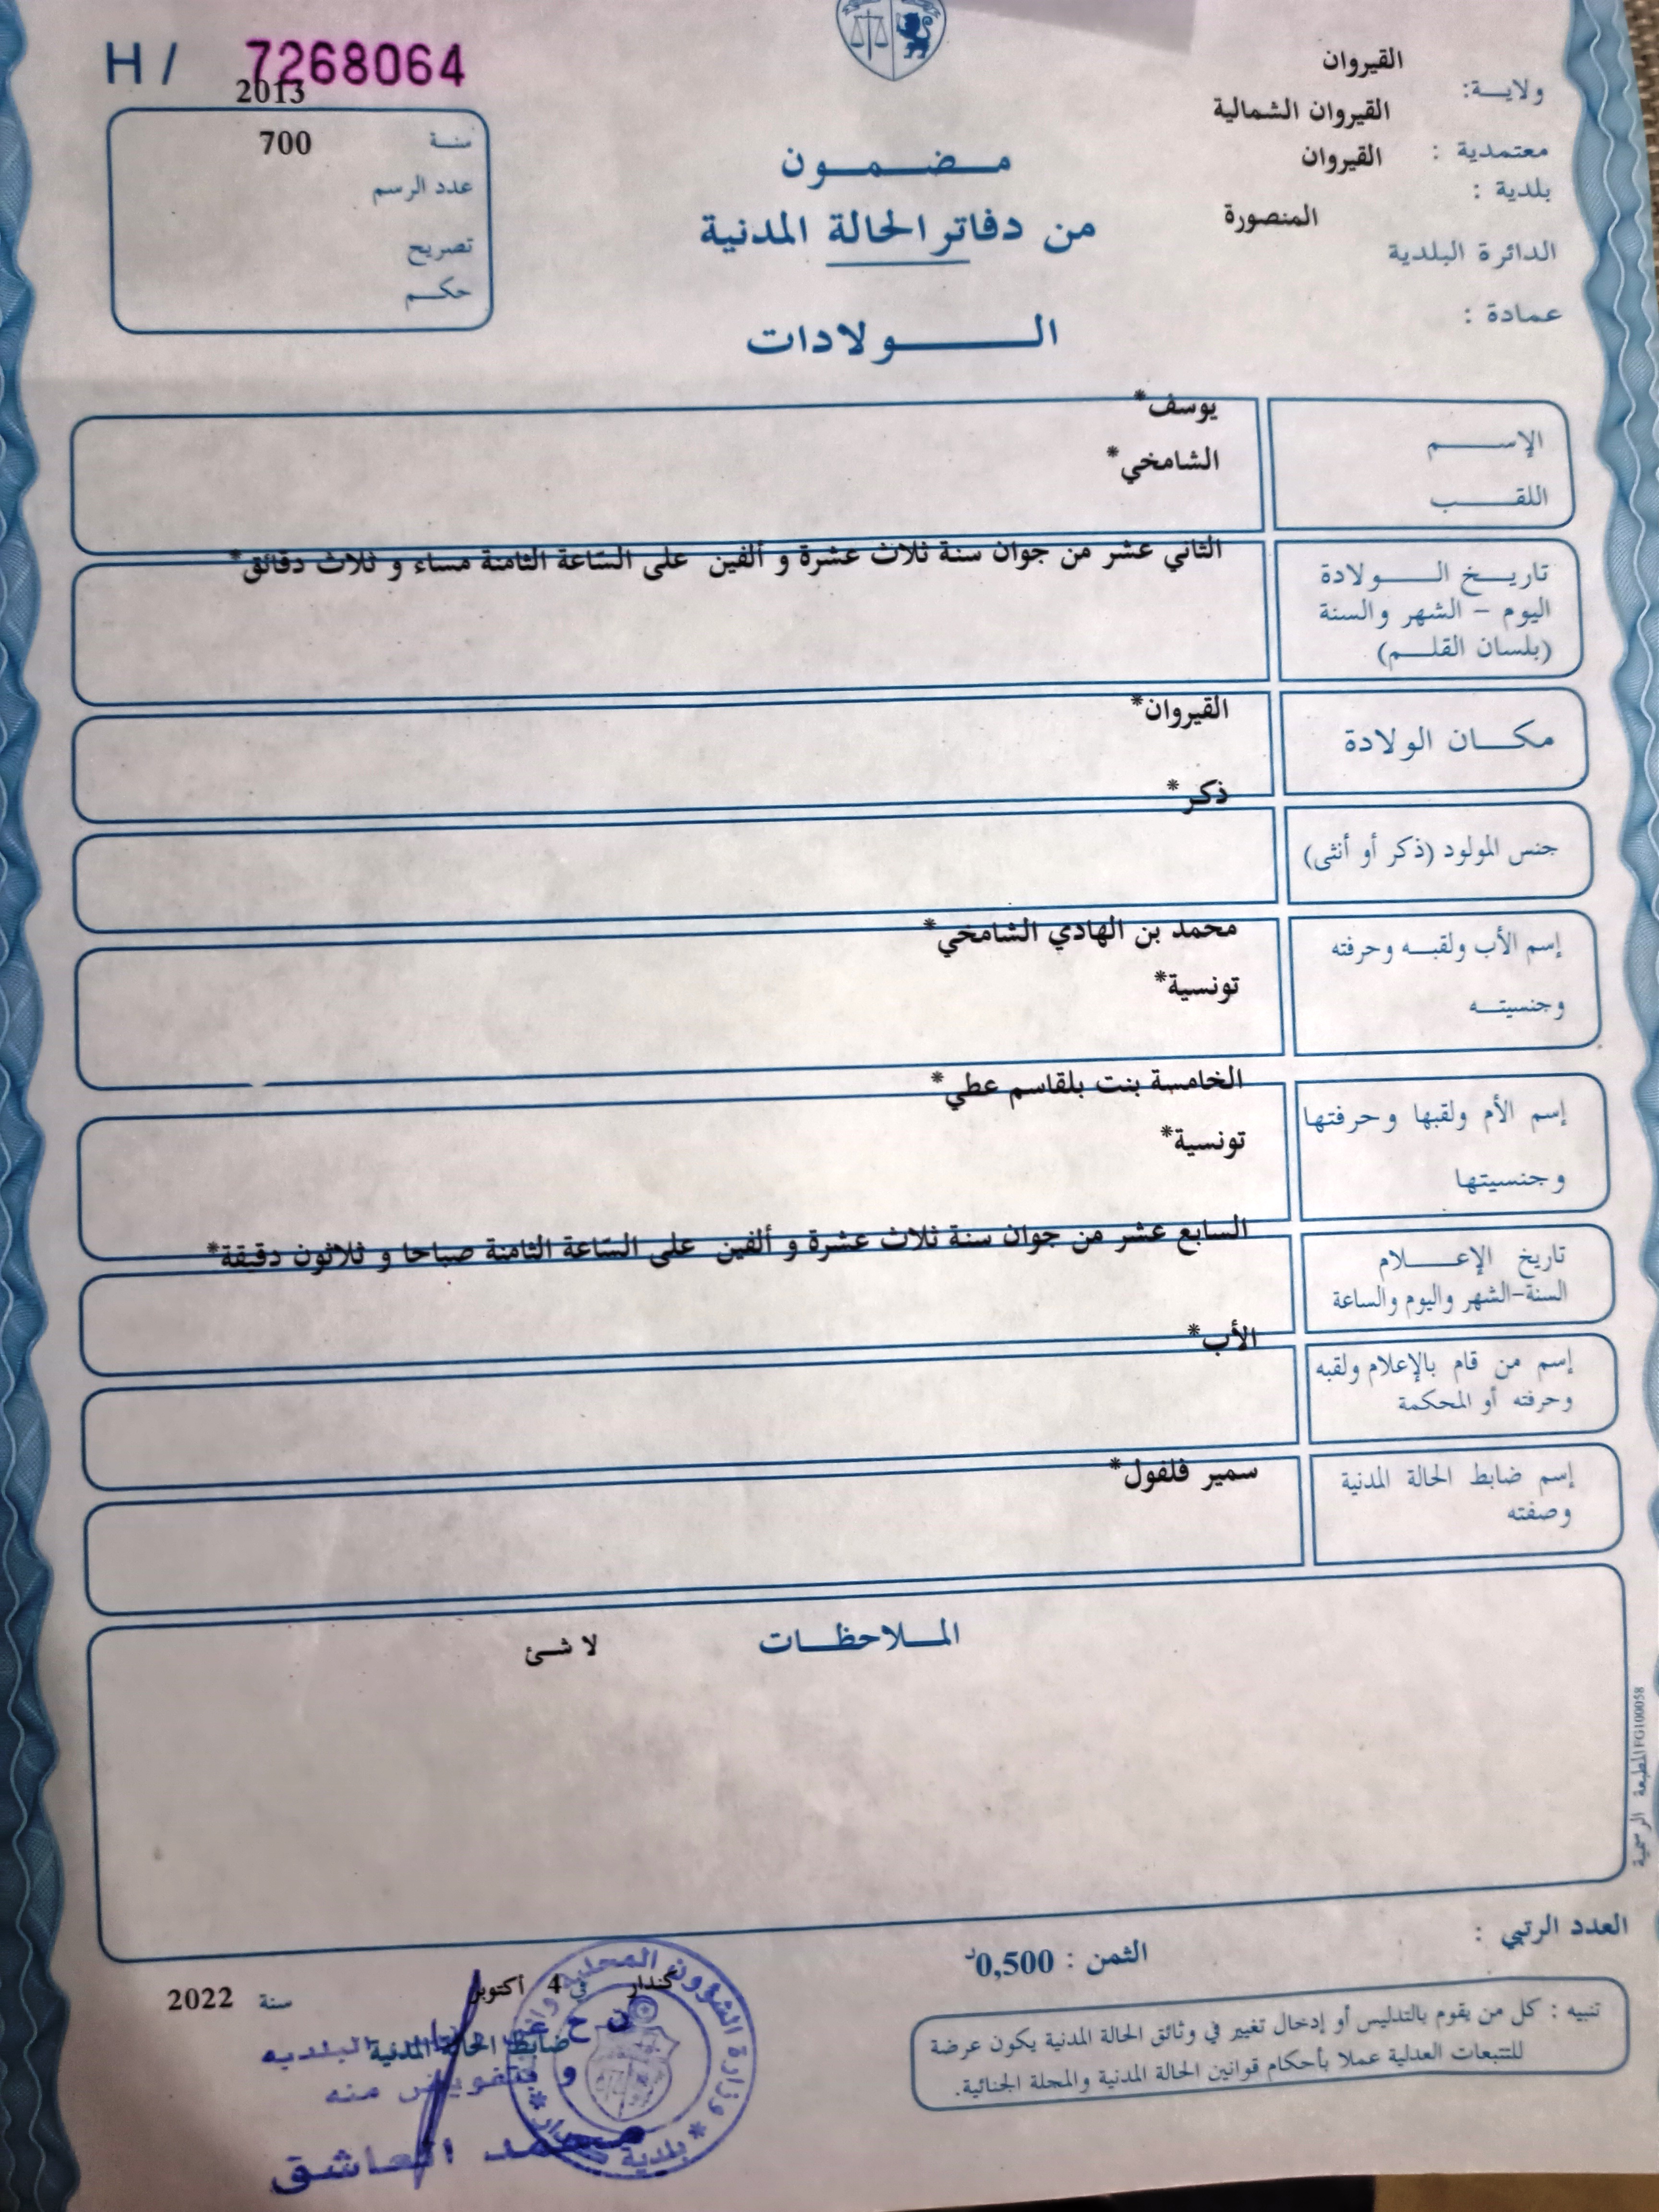 H / 7268064
2013
سنة
700
عدد الرسم
تصريح
حكم
مضمون
من دفاتر الحالة المدنية
الولادات
القيروان
ولاية:
القيروان الشمالية
معتمدية :
القيروان
بلدية :
المنصورة
الدائرة البلدية
عمادة :
يوسف*
الإسم
الشامخي*
اللقب
الثاني عشر من جوان سنة ثلاث عشرة و ألفين على السّاعة الثامنة مساء و ثلاث دقائق*
تاريخ الولادة
اليوم - الشهر والسنة
(بلسان القلم)
القيروان*
مكان الولادة
ذكر*
جنس المولود (ذكر أو أنثى)
محمد بن الهادي الشامخي*
إسم الأب ولقبه وحرفته
تونسية*
وجنسيته
الخامسة بنت بلقاسم عطي*
إسم الأم ولقبها وحرفتها
تونسية*
وجنسيتها
السابع عشر من جوان سنة ثلاث عشرة و ألفين على السّاعة الثامنة صباحا و ثلاثون دقيقة*
تاريخ الإعلام
السنة-الشهر واليوم والساعة
الأب*
إسم من قام بالإعلام ولقبه
وحرفته أو المحكمة
سمير فلفول*
إسم ضابط الحالة المدنية
وصفته
الملاحظات
لا شئ
المطبعة الرسمية FG100058
العدد الرتبي :
الثمن : 0,500د
كندار في 4 أكتوبر سنة 2022
ضابط الحالة المدنية
البلدية
و بتفويض منه
محمد العاشق
وزارة الشؤون المحلية
* بلدية كندار *
تنبيه : كل من يقوم بالتدليس أو إدخال تغيير في وثائق الحالة المدنية يكون عرضة
للتتبعات العدلية عملا بأحكام قوانين الحالة المدنية والمجلة الجنائية.